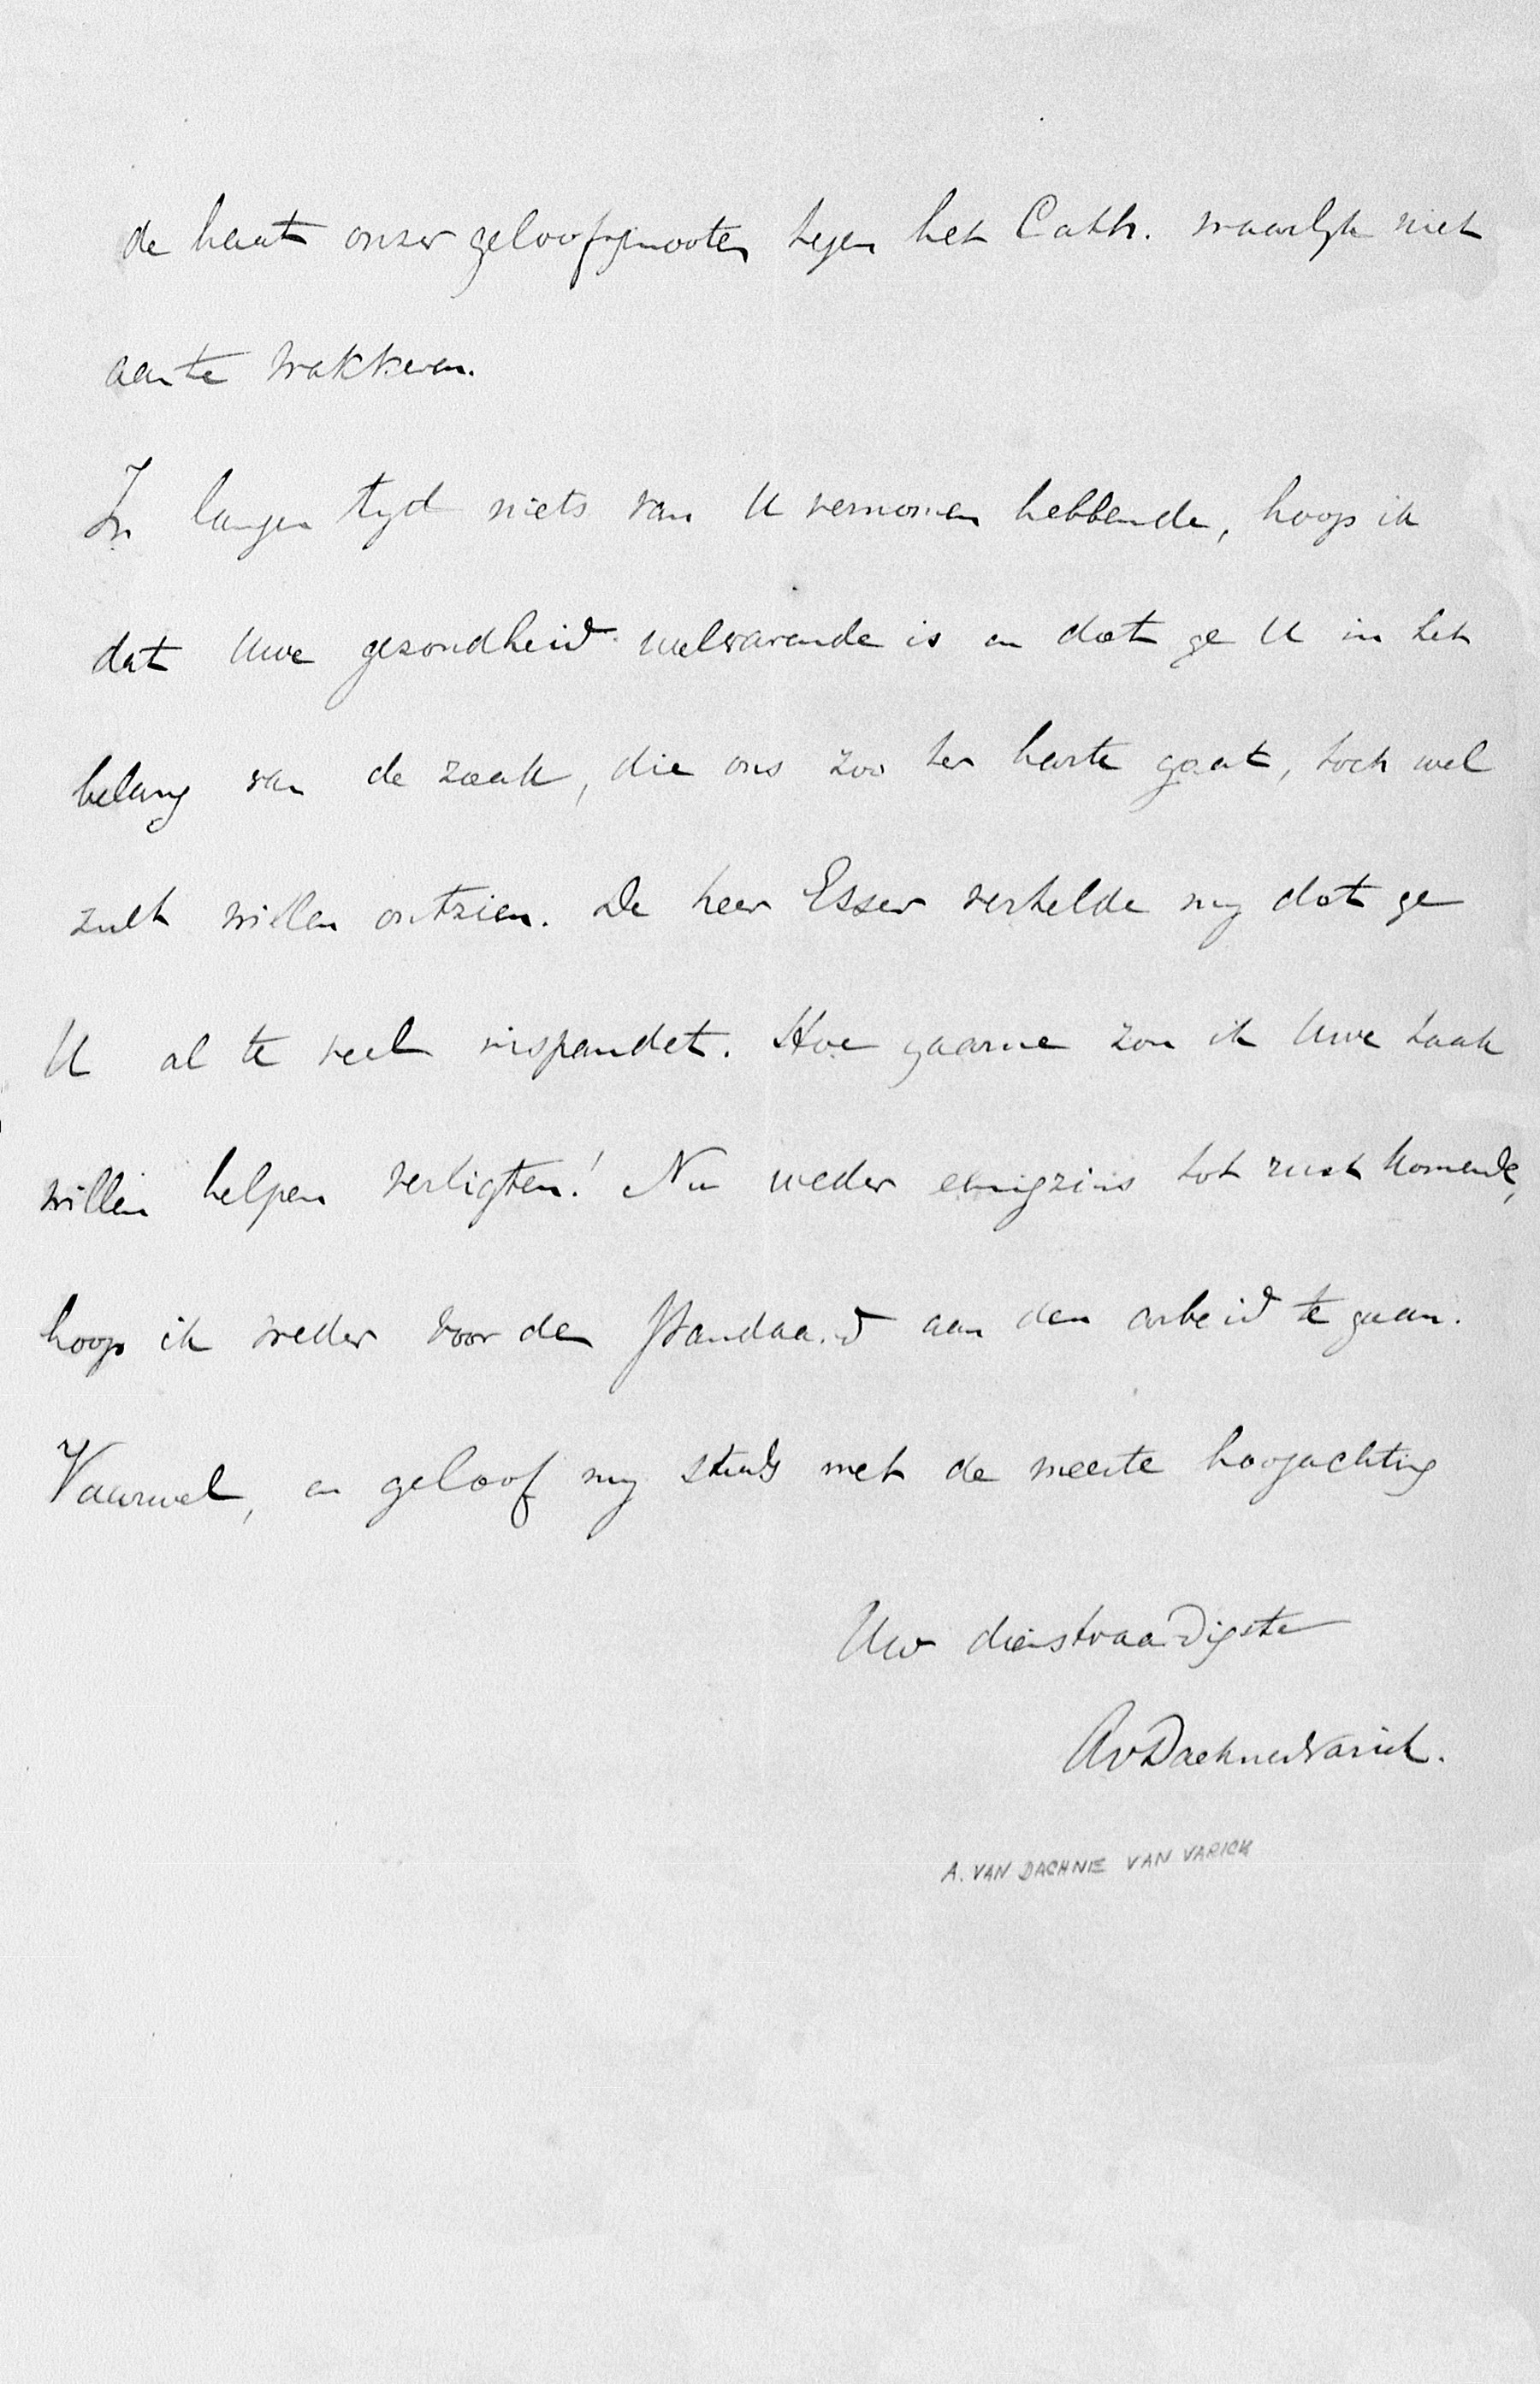 de haat onzer geloofsgenooten tegen het Cath. waarlyk niet
aan te wakkeren.
In langen tyd niets van U vernomen hebbende, hoop ik
dat Uwe gezondheid welvarende is en dat ge U in het
belang van de zaak, die ons zoo ter harte gaat, toch wel
zult willen ontzien. De heer Esser vertelde my dat ge
U al te veel inspandet. Hoe gaarne zou ik Uwe taak
willen helpen verligten! Nu weder eenigzins tot rust komende,
hoop ik weder voor den Standaard aan den arbeid te gaan.
Vaarwel, en geloof my steeds met de meeste hoogachting
Uw dienstvaardigste
AvDaehnevVarick.
A. VAN DACHNIE VAN VARICK